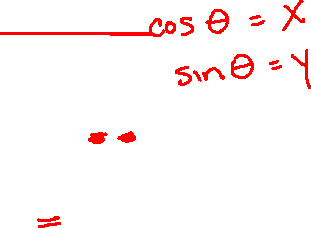 cos θ = X
sin θ = Y
=